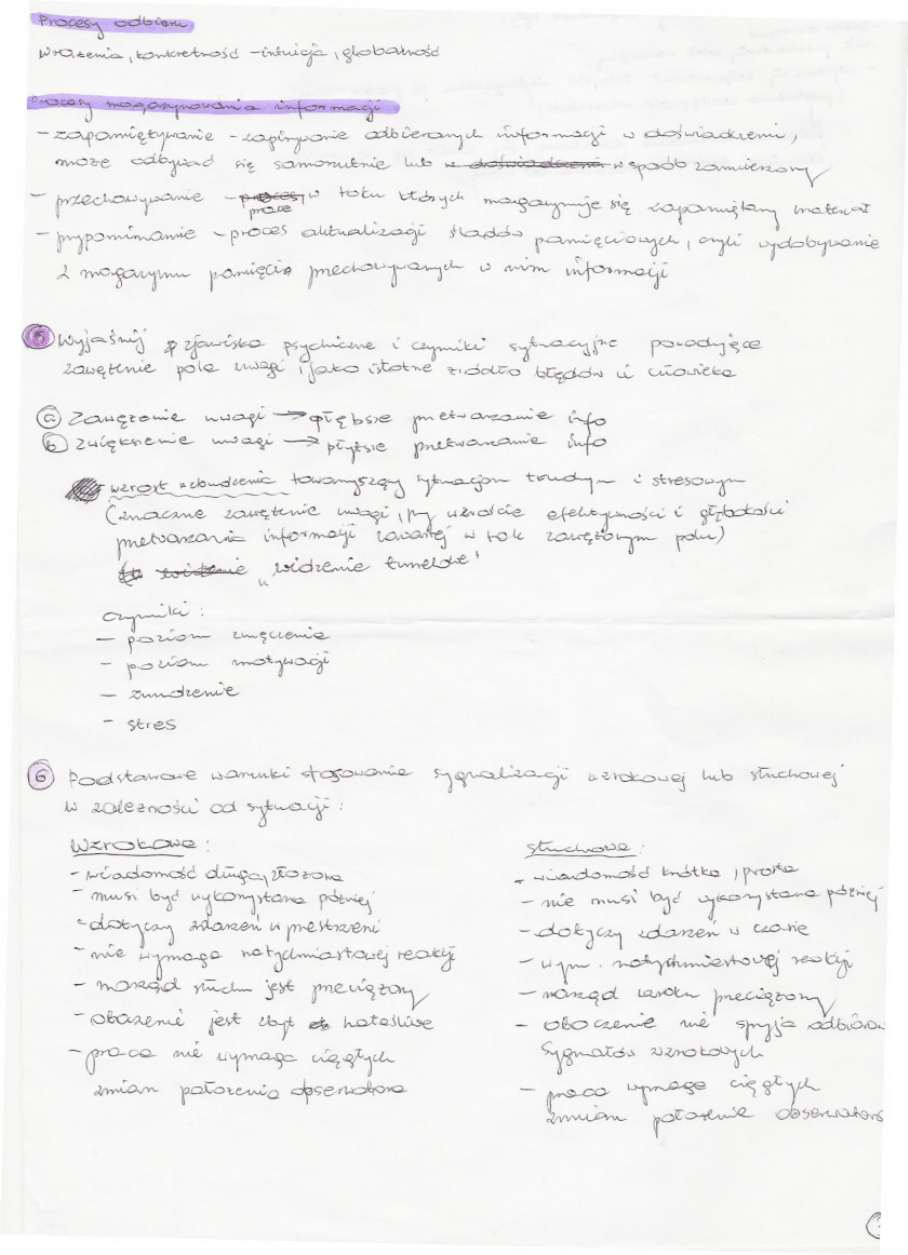 Procesy odbioru
Wrażenia, konkretność - intuicja, globalność
Procesy magazynowania informacji
- zapamiętywanie - zapisywanie odbieranych informacji w doświadczeniu,
może odbywać się samorzutnie lub w doświadczeniu w sposób zamierzony
- przechowywanie - procesy w toku których magazynuje się zapamiętany materiał
prace
- przypominanie - proces aktualizacji śladów pamięciowych, czyli wydobywanie
z magazynu pamięcia przechowywanych w nim informacji
5 Wyjaśnij zjawiska psychiczne i czynniki sytuacyjne powodujące
zawężenie pola uwagi i jako istotne źródło błędów u człowieka
a) Zawężenie uwagi → głębsze przetwarzanie info
b) Zwiększenie uwagi → płytsze przetwarzanie info
wzrost wzbudzenia towarzyszący sytuacjom trudnym i stresowym
(znaczne zawężenie uwagi, przy wzroście efektywności i głębokości
przetwarzania informacji zawartej w tak zawężonym polu)
widzenie "widzenie tunelowe"
czynniki:
- poziom zmęczenia
- poziom motywacji
- znudzenie
- stres
6 Podstawowe warunki stosowania sygnalizacji wzrokowej lub słuchowej
w zależności od sytuacji:
Wzrokowa:
- wiadomość długa, złożona
- musi być wykorzystana później
- dotyczy zdarzeń w przestrzeni
- nie wymaga natychmiastowej reakcji
- narząd słuchu jest przeciążony
- otoczenie jest zbyt hałaśliwe
- praca nie wymaga ciągłych
zmian położenia obserwatora
słuchowa:
- wiadomość krótka, prosta
- nie musi być wykorzystana później
- dotyczy zdarzeń w czasie
- wym. natychmiastowej reakcji
- narząd wzroku przeciążony
- otoczenie nie sprzyja odbiorow
sygnałów wzrokowych
- praca wymaga ciągłych
zmian położenia obserwatora